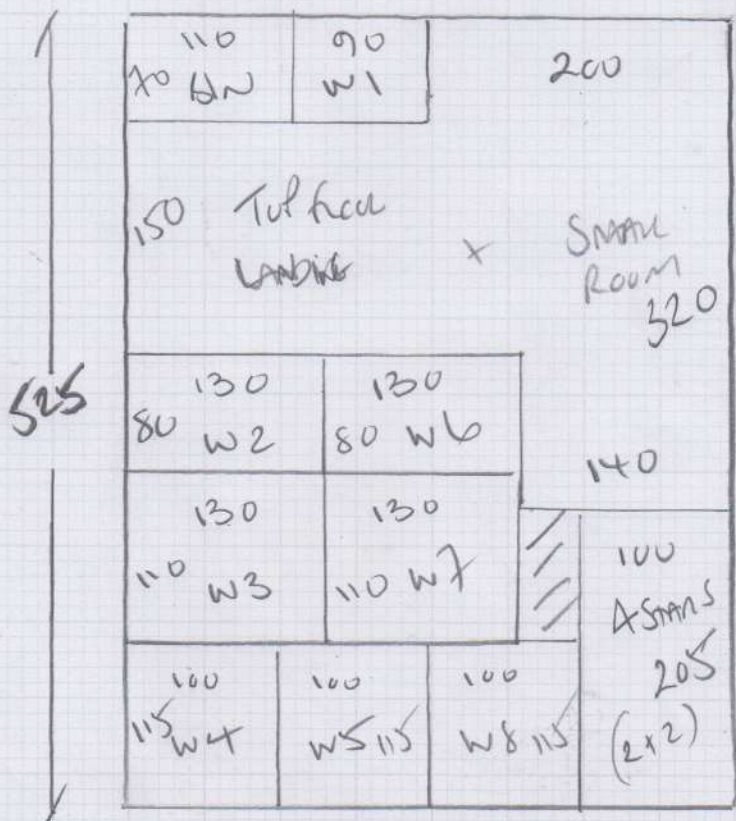 110
70 BIN
90
W1
200
150 Top floor
LANDING
X
SMALL
ROOM
320
525
130
80 W2
130
80 W6
140
130
110 W3
130
110 W7
100
4 STAIRS
205
(2+2)
100
115 W4
100
W5 115
100
W8 115